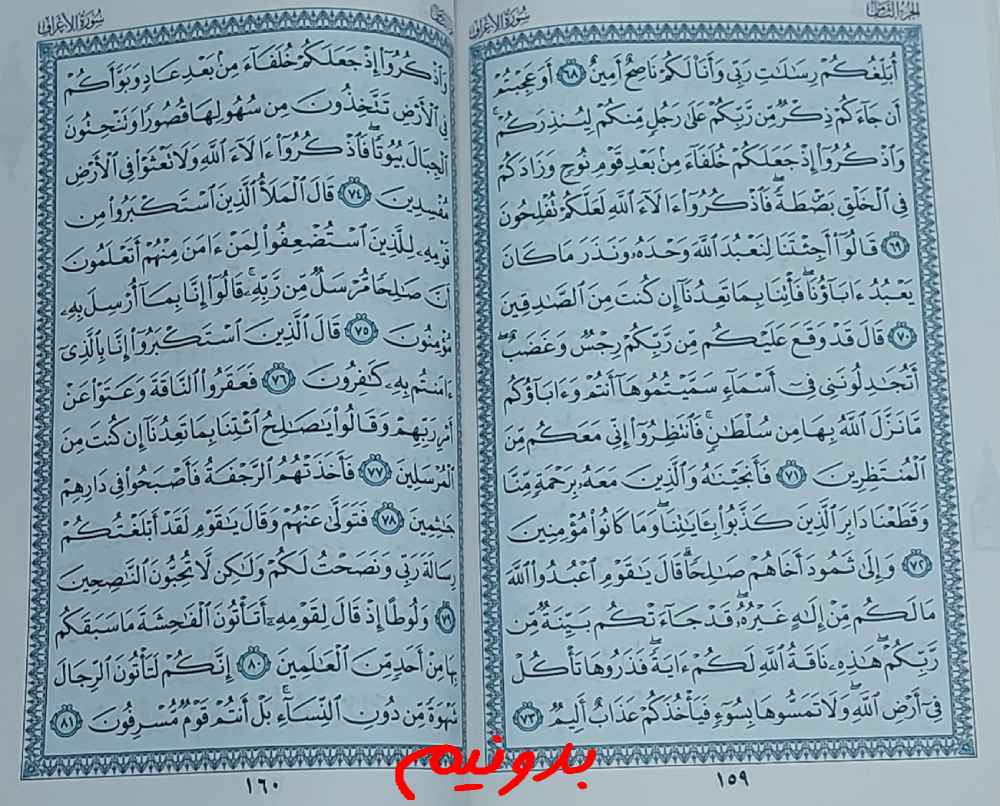 الجزء الثامن
سورة الأعراف
أُبَلِّغُكُمْ رِسَٰلَٰتِ رَبِّى وَأَنَا۠ لَكُمْ نَاصِحٌ أَمِينٌ ٦٨ أَوَعَجِبْتُمْ
أَن جَآءَكُمْ ذِكْرٌ مِّن رَّبِّكُمْ عَلَىٰ رَجُلٍ مِّنكُمْ لِيُنذِرَكُمْ ۚ
وَٱذْكُرُوٓا۟ إِذْ جَعَلَكُمْ خُلَفَآءَ مِنۢ بَعْدِ قَوْمِ نُوحٍ وَزَادَكُمْ
فِى ٱلْخَلْقِ بَصْۜطَةً ۖ فَٱذْكُرُوٓا۟ ءَالَآءَ ٱللَّهِ لَعَلَّكُمْ تُفْلِحُونَ
٦٩ قَالُوٓا۟ أَجِئْتَنَا لِنَعْبُدَ ٱللَّهَ وَحْدَهُۥ وَنَذَرَ مَا كَانَ
يَعْبُدُ ءَابَآؤُنَا ۖ فَأْتِنَا بِمَا تَعِدُنَآ إِن كُنتَ مِنَ ٱلصَّٰدِقِينَ
٧٠ قَالَ قَدْ وَقَعَ عَلَيْكُم مِّن رَّبِّكُمْ رِجْسٌ وَغَضَبٌ ۖ
أَتُجَٰدِلُونَنِى فِىٓ أَسْمَآءٍ سَمَّيْتُمُوهَآ أَنتُمْ وَءَابَآؤُكُم
مَّا نَزَّلَ ٱللَّهُ بِهَا مِن سُلْطَٰنٍ ۚ فَٱنتَظِرُوٓا۟ إِنِّى مَعَكُم مِّنَ
ٱلْمُنتَظِرِينَ ٧١ فَأَنجَيْنَٰهُ وَٱلَّذِينَ مَعَهُۥ بِرَحْمَةٍ مِّنَّا
وَقَطَعْنَا دَابِرَ ٱلَّذِينَ كَذَّبُوا۟ بِـَٔايَٰتِنَا ۖ وَمَا كَانُوا۟ مُؤْمِنِينَ
٧٢ وَإِلَىٰ ثَمُودَ أَخَاهُمْ صَٰلِحًا ۗ قَالَ يَٰقَوْمِ ٱعْبُدُوا۟ ٱللَّهَ
مَا لَكُم مِّنْ إِلَٰهٍ غَيْرُهُۥ ۖ قَدْ جَآءَتْكُم بَيِّنَةٌ مِّن
رَّبِّكُمْ ۖ هَٰذِهِۦ نَاقَةُ ٱللَّهِ لَكُمْ ءَايَةً ۖ فَذَرُوهَا تَأْكُلْ
فِىٓ أَرْضِ ٱللَّهِ ۖ وَلَا تَمَسُّوهَا بِسُوٓءٍ فَيَأْخُذَكُمْ عَذَابٌ أَلِيمٌ ٧٣
١٥٩
سورة الأعراف
وَٱذْكُرُوٓا۟ إِذْ جَعَلَكُمْ خُلَفَآءَ مِنۢ بَعْدِ عَادٍ وَبَوَّأَكُمْ
فِى ٱلْأَرْضِ تَتَّخِذُونَ مِن سُهُولِهَا قُصُورًا وَتَنْحِتُونَ
ٱلْجِبَالَ بُيُوتًا ۖ فَٱذْكُرُوٓا۟ ءَالَآءَ ٱللَّهِ وَلَا تَعْثَوْا۟ فِى ٱلْأَرْضِ
مُفْسِدِينَ ٧٤ قَالَ ٱلْمَلَأُ ٱلَّذِينَ ٱسْتَكْبَرُوا۟ مِن
قَوْمِهِۦ لِلَّذِينَ ٱسْتُضْعِفُوا۟ لِمَنْ ءَامَنَ مِنْهُمْ أَتَعْلَمُونَ
أَنَّ صَٰلِحًا مُّرْسَلٌ مِّن رَّبِّهِۦ ۚ قَالُوٓا۟ إِنَّا بِمَآ أُرْسِلَ بِهِۦ
مُؤْمِنُونَ ٧٥ قَالَ ٱلَّذِينَ ٱسْتَكْبَرُوٓا۟ إِنَّا بِٱلَّذِىٓ
ءَامَنتُم بِهِۦ كَٰفِرُونَ ٧٦ فَعَقَرُوا۟ ٱلنَّاقَةَ وَعَتَوْا۟ عَنْ
أَمْرِ رَبِّهِمْ وَقَالُوا۟ يَٰصَٰلِحُ ٱئْتِنَا بِمَا تَعِدُنَآ إِن كُنتَ مِنَ
ٱلْمُرْسَلِينَ ٧٧ فَأَخَذَتْهُمُ ٱلرَّجْفَةُ فَأَصْبَحُوا۟ فِى دَارِهِمْ
جَٰثِمِينَ ٧٨ فَتَوَلَّىٰ عَنْهُمْ وَقَالَ يَٰقَوْمِ لَقَدْ أَبْلَغْتُكُمْ
رِسَالَةَ رَبِّى وَنَصَحْتُ لَكُمْ وَلَٰكِن لَّا تُحِبُّونَ ٱلنَّٰصِحِينَ
٧٩ وَلُوطًا إِذْ قَالَ لِقَوْمِهِۦٓ أَتَأْتُونَ ٱلْفَٰحِشَةَ مَا سَبَقَكُم
بِهَا مِنْ أَحَدٍ مِّنَ ٱلْعَٰلَمِينَ ٨٠ إِنَّكُمْ لَتَأْتُونَ ٱلرِّجَالَ
شَهْوَةً مِّن دُونِ ٱلنِّسَآءِ ۚ بَلْ أَنتُمْ قَوْمٌ مُّسْرِفُونَ ٨١
١٦٠
بدونیم